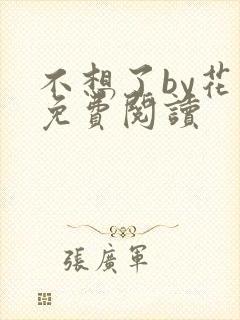 不想了by花
免費閱讀
張廣軍